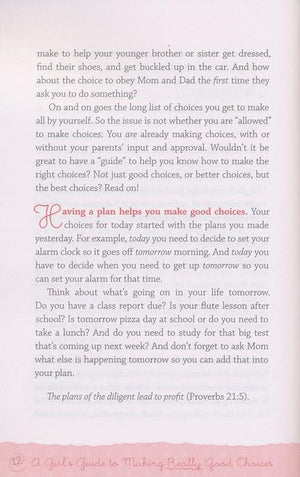 make to help your younger brother or sister get dressed,
find their shoes, and get buckled up in the car. And how
about the choice to obey Mom and Dad the first time they
ask you to do something?
On and on goes the long list of choices you get to make
all by yourself. So the issue is not whether you are “allowed”
to make choices: You are already making choices, with or
without your parents' input and approval. Wouldn't it be
great to have a “guide” to help you know how to make the
right choices? Not just good choices, or better choices, but
the best choices? Read on!
Having a plan helps you make good choices. Your
choices for today started with the plans you made
yesterday. For example, today you need to decide to set your
alarm clock so it goes off tomorrow morning. And today you
have to decide when you need to get up tomorrow so you
can set your alarm for that time.
Think about what's going on in your life tomorrow.
Do you have a class report due? Is your flute lesson after
school? Is tomorrow pizza day at school or do you need to
take a lunch? And do you need to study for that big test
that's coming up next week? And don't forget to ask Mom
what else is happening tomorrow so you can add that into
your plan.
The plans of the diligent lead to profit (Proverbs 21:5).
12 A Girl's Guide to Making Really Good Choices